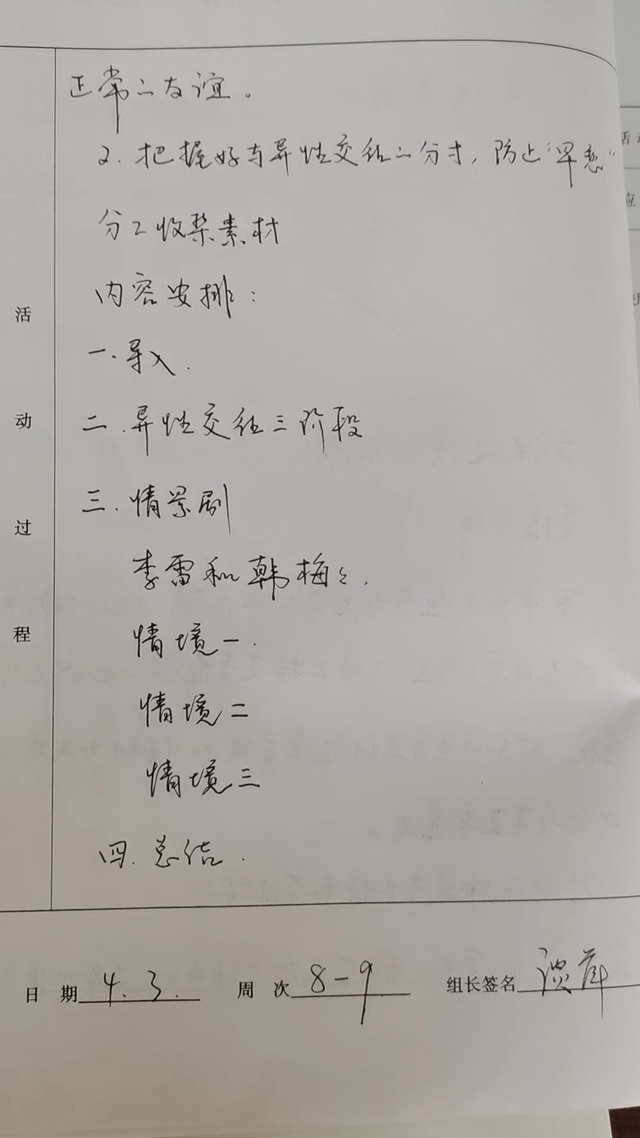 正常的友谊。
2. 把握好与异性交往的分寸，防止“早恋”
分工收集素材
内容安排：
一. 导入.
二. 异性交往三阶段
三. 情景剧
李雷和韩梅々.
情境一.
情境二
情境三
四. 总结.
活动过程
日 期 4.3. 周 次 8-9 组长签名